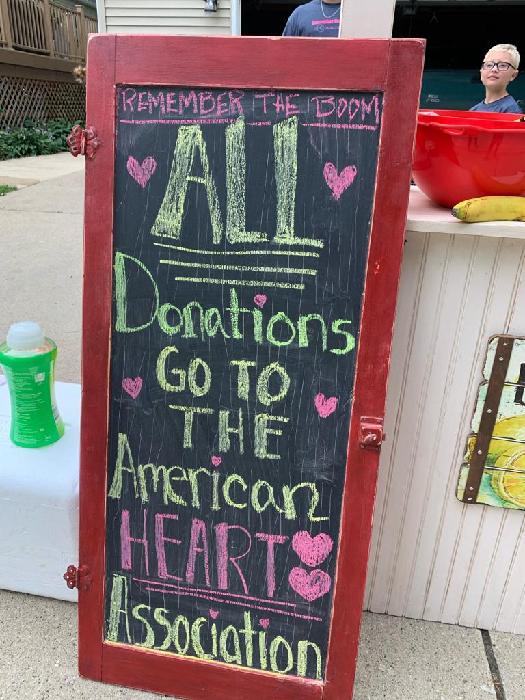 REMEMBER THE BOOM
ALL
Donations
GO TO
THE
American
HEART
Association